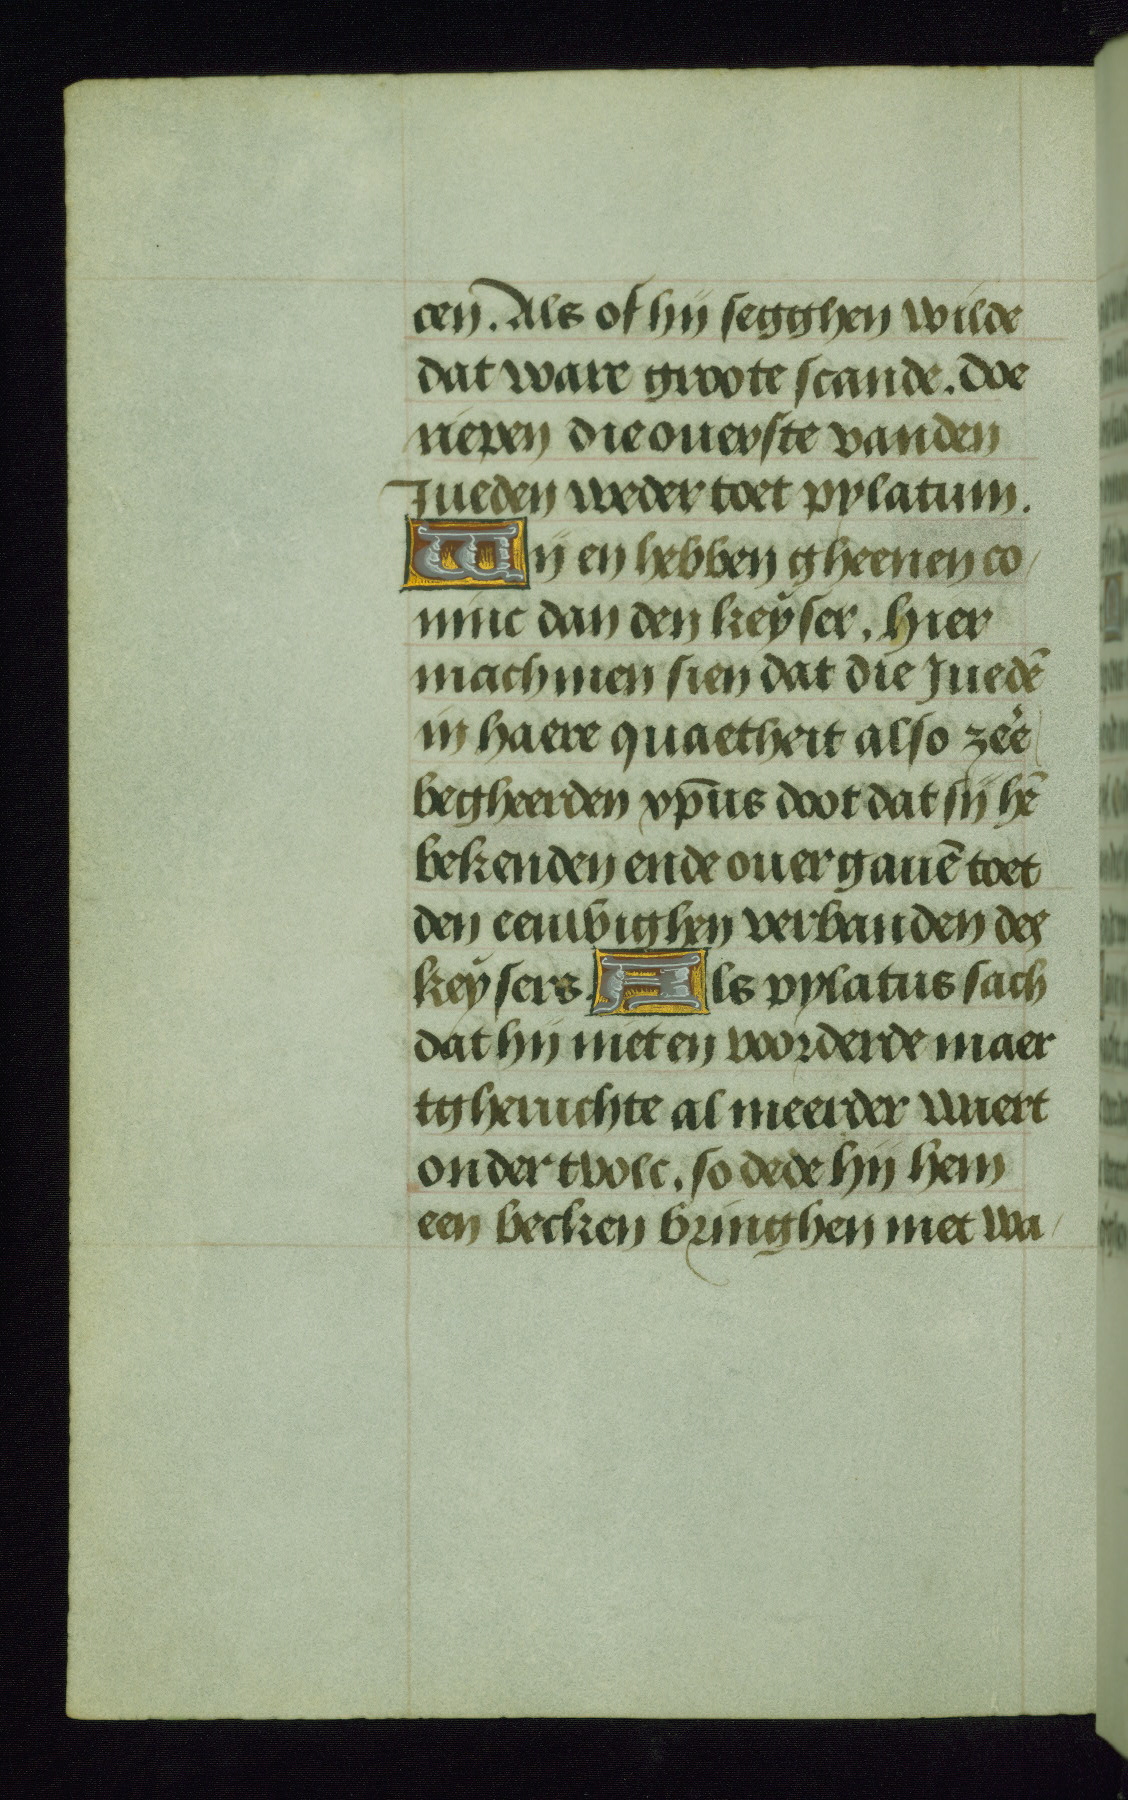 cen. Als of hij segghen wilde
dat ware groote scande. Doe
riepen die ouerste vanden
Jueden weder toet pylatum.
Wij en hebben gheenen co/
ninc dan den keyser. hier
machmen sien dat die Juedē
in haere quaetheit also zeẽ
begheerden xp̄us doot dat sij hē
bekenden ende ouergauē toet
den eeuwighen verbanden des
keysers. Als pylatus sach
dat hij niet en voorderde maer
tgheruchte al meerder wuert
onder tvolc. so dede hij hem
een becken bringhen met wa/